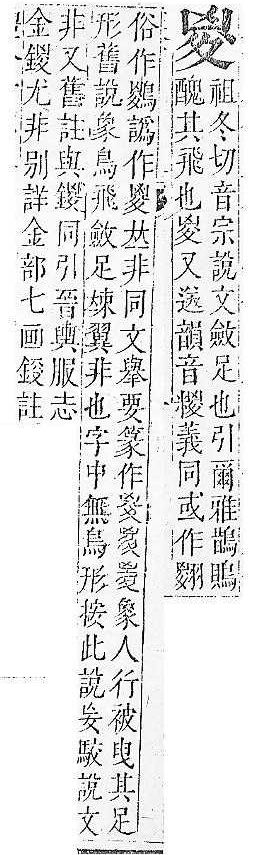 㚇
祖冬切音宗說文斂足也引爾雅鵲鵙
醜其飛也㚇又送韻音糉義同或作翪
俗作 譌作 𠀤非同文舉要篆作 象人行被曳其足
形舊說象鳥飛斂足竦翼非也字中無鳥形按此說妄駁說文
非又舊註與鍐同引晉輿服志
金鍐尤非別詳金部七画錽註